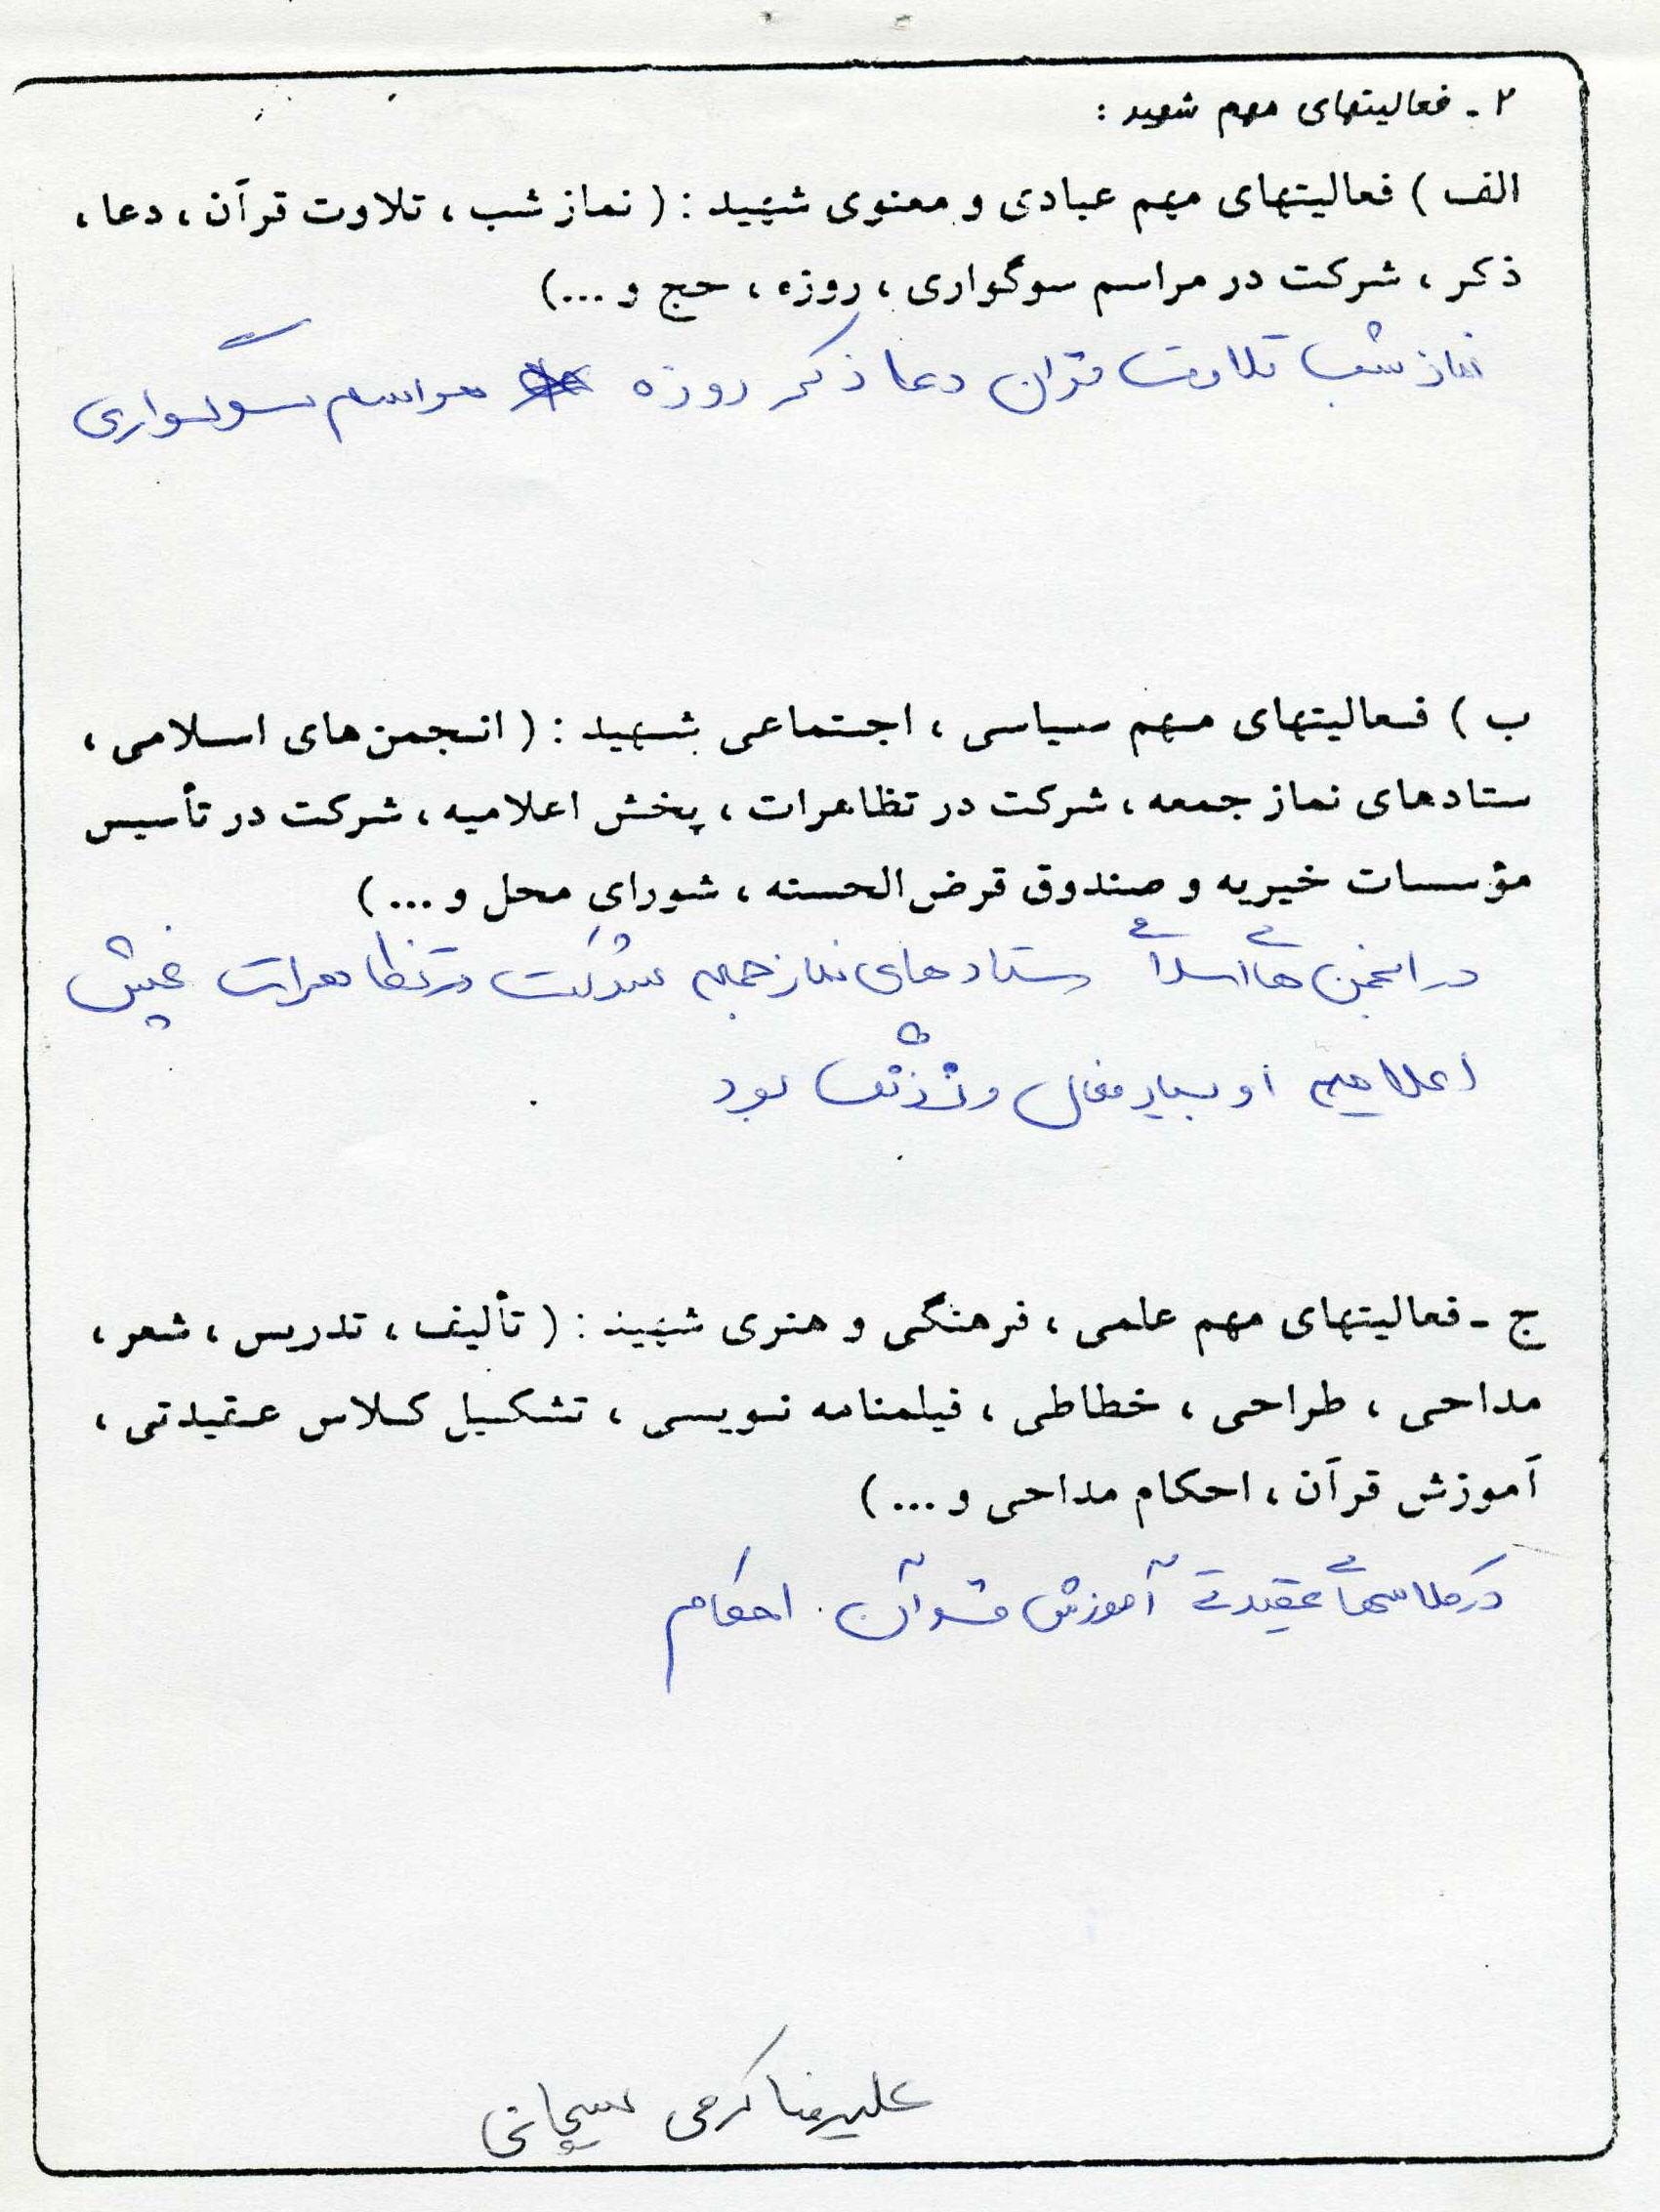 ۲ - فعالیتهای مهم شهید :
الف ) فعالیتهای مهم عبادی و معنوی شهید : ( نماز شب ، تلاوت قرآن ، دعا ،
ذکر ، شرکت در مراسم سوگواری ، روزه ، حج و ...)
نماز شب تلاوت قران دعا ذکر روزه مراسم سوگواری
ب ) فعالیتهای مهم سیاسی ، اجتماعی شهید : ( انجمن‌های اسلامی ،
ستادهای نماز جمعه ، شرکت در تظاهرات ، پخش اعلامیه ، شرکت در تأسیس
مؤسسات خیریه و صندوق قرض‌الحسنه ، شورای محل و ... )
در انجمن های اسلامی ستادهای نماز جمعه شرکت در تظاهرات پخش
اعلامیه او بسیار فعال و بود
ج - فعالیتهای مهم علمی ، فرهنگی و هنری شهید : ( تألیف ، تدریس ، شعر ،
مداحی ، طراحی ، خطاطی ، فیلمنامه نویسی ، تشکیل کلاس عقیدتی ،
آموزش قرآن ، احکام مداحی و ... )
در کلاسهای عقیدتی آموزش قرآن . احکام
علیرضا کرمی سیچانی